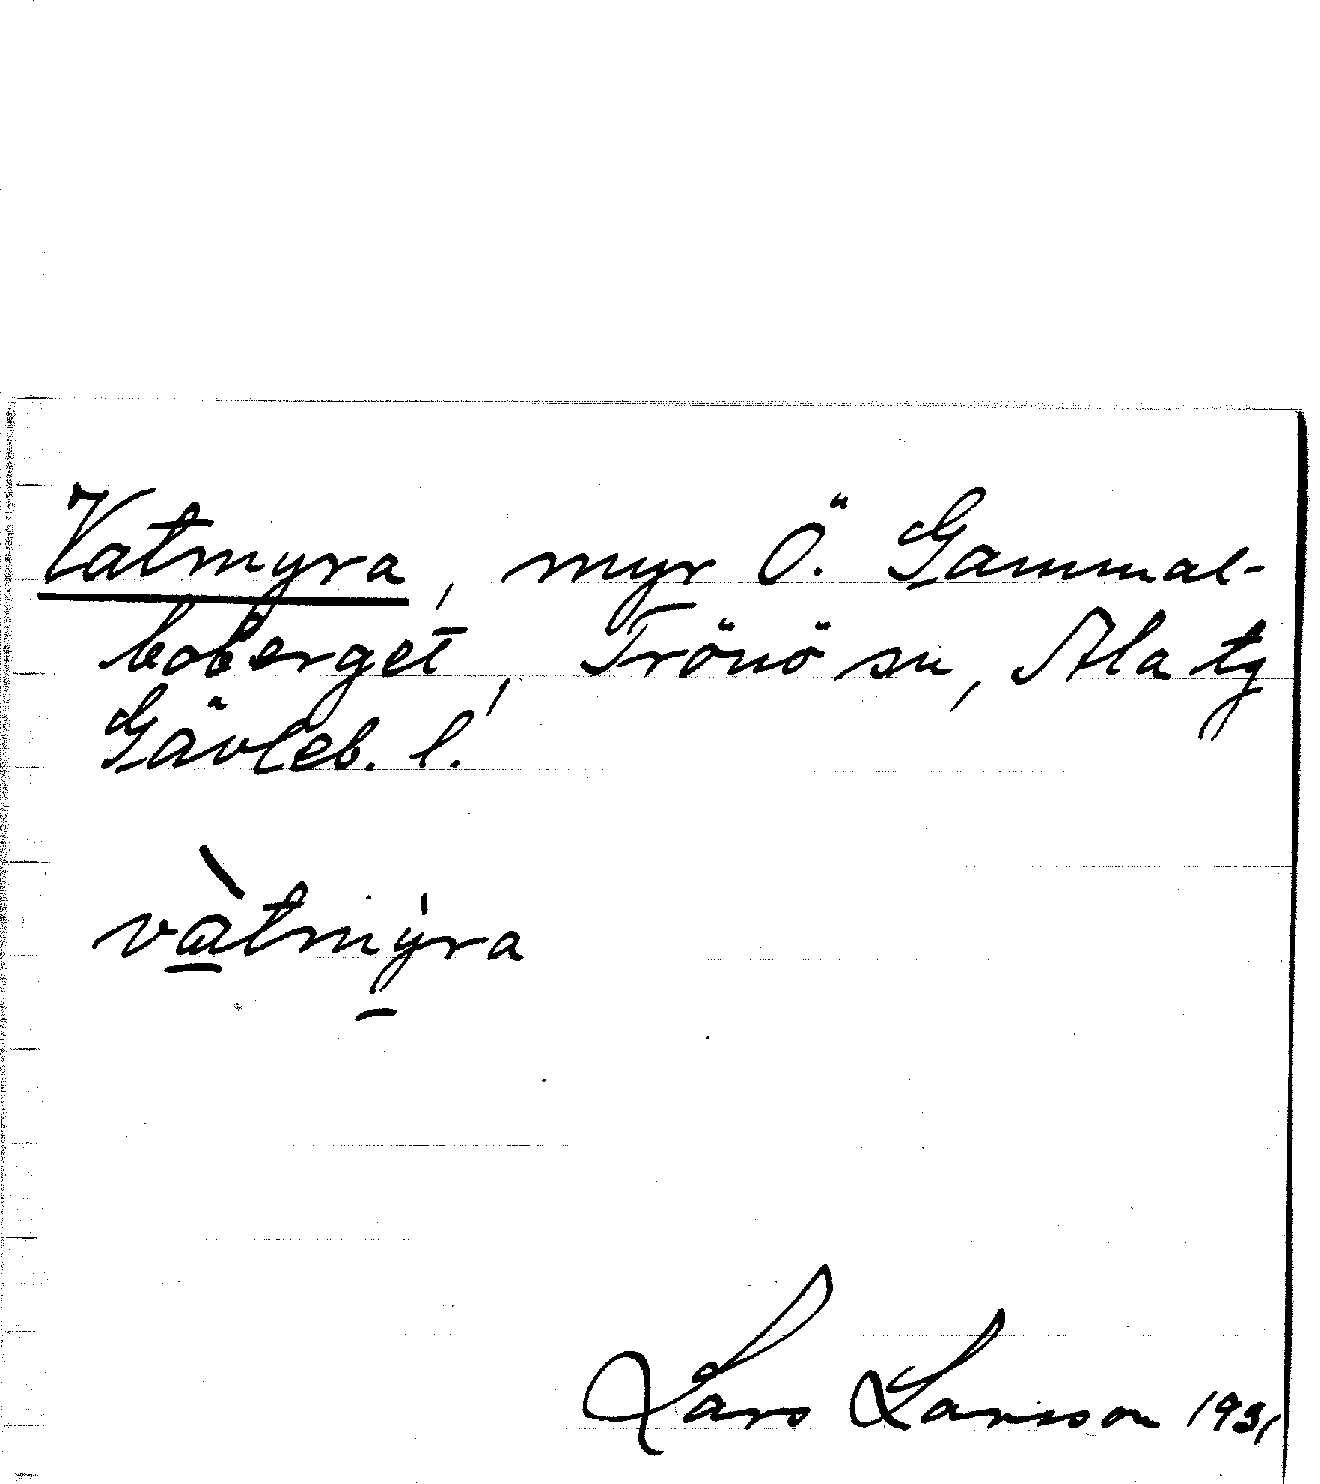 Vatmyra, myr Ö. Gammal-
boberget, Trönö sn, Ala tg
Gävleb. l.
vàtmýra
Lars Larsson 1931